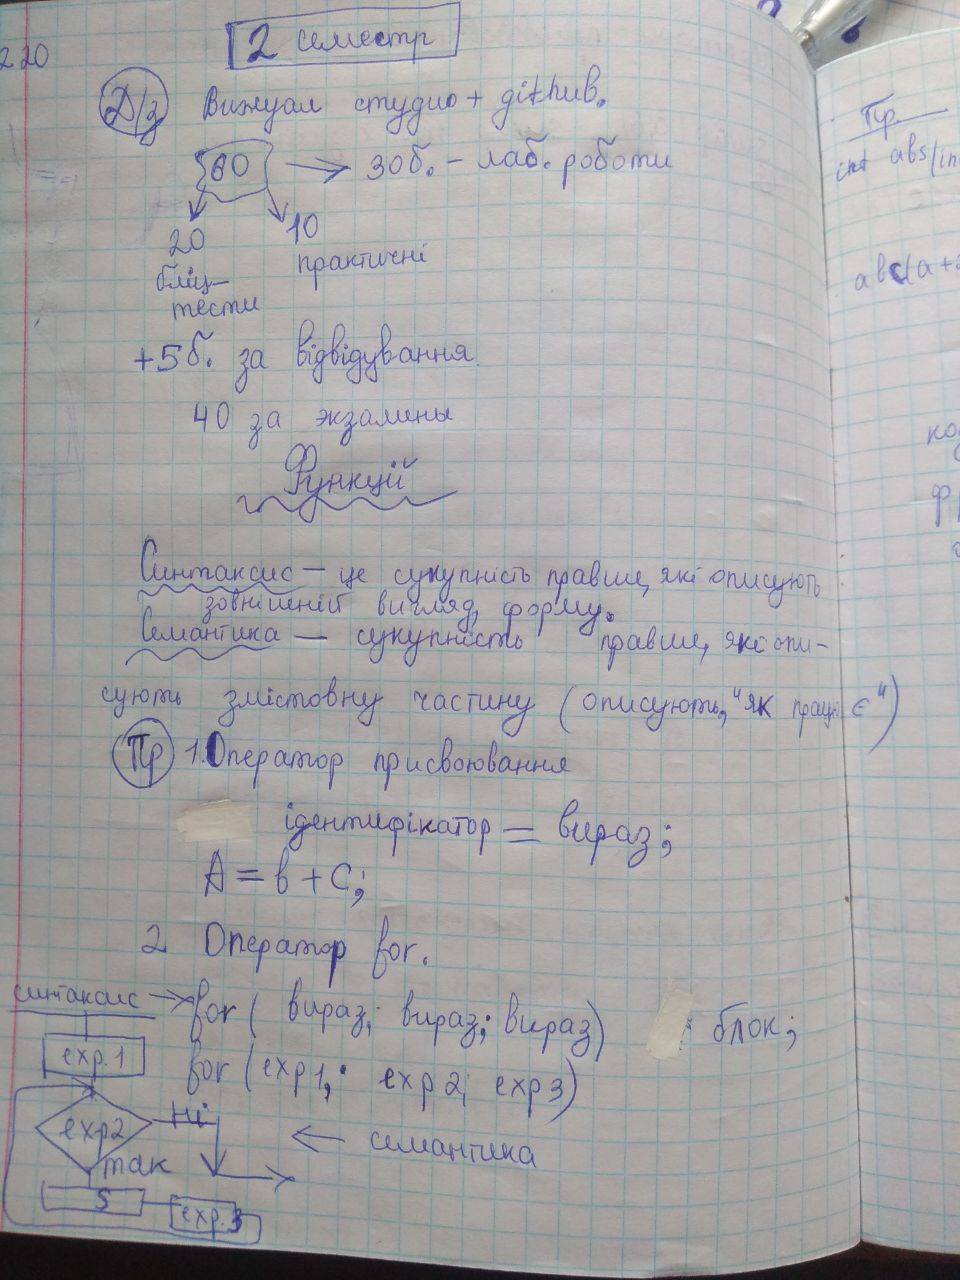 220
2 семестр
Д/з Вижуал студио + github.
60 → 30б. - лаб. роботи
20 10
бліц- практичні
тести
+5б. за відвідування.
40 за экзамены
Функцій
Синтаксис — це сукупність правил, які описують
зовнішній вигляд, форму.
Семантика — сукупність правил, які опи-
сують змістовну частину (описують, "як працює")
Пр 1. Оператор присвоювання
ідентифікатор = вираз;
A = b + C;
2 Оператор for.
синтаксис → for ( вираз; вираз; вираз) блок;
exp.1
for (exp1; exp2; exp3)
exp2 ні
← семантика
так
S exp.3
Пр.
int abs(in
abs(a+